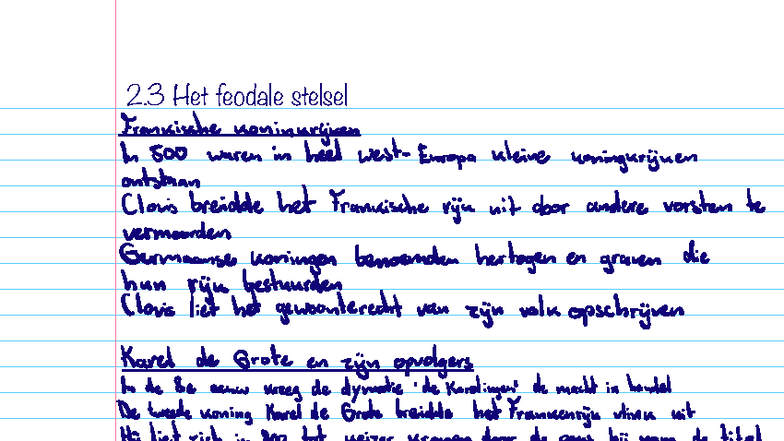 2.3 Het feodale stelsel
Frankische koninkrijken
In 500 waren in heel West-Europa kleine koningkrijken
ontstaan
Clovis breidde het Frankische rijk uit door andere vorsten te
vermoorden
Germaanse koningen benoemden hertogen en graven die
hun rijk bestuurden
Clovis liet het gewoonterecht van zijn volk opschrijven
Karel de Grote en zijn opvolgers
In de 8e eeuw kreeg de dynatie 'de Karolingen' de macht in handel
De tweede koning Karel de Grote breidde het Frankenrijk flink uit
Hij liet zich in 800 tot keizer kronen door de paus hij nam de titel